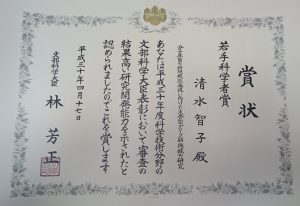 賞状
若手科学者賞
清水智子殿
あなたは平成三十年度科学技術分野の
文部科学大臣表彰において審査の
結果高い研究開発能力を示されたと
認められましたのでこれを賞します
平成三十年四月十七日
文部科学大臣 林芳正